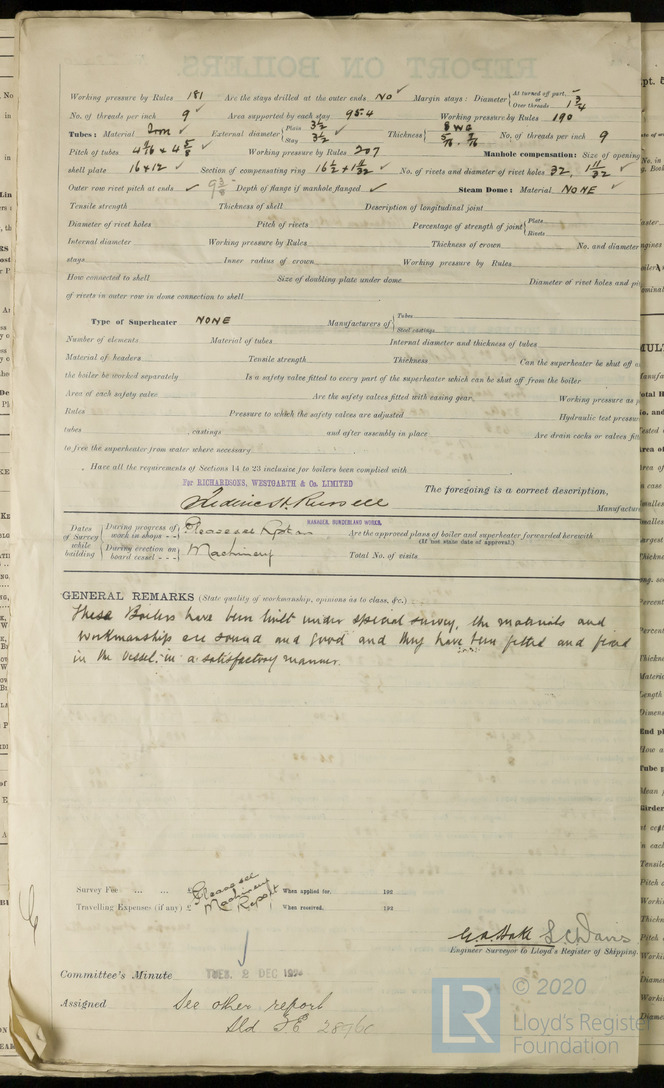 Working pressure by Rules 181 Are the stays drilled at the outer ends NO Margin stays: Diameter { At turned off part, or Over threads 1 3/4
No. of threads per inch 9 Area supported by each stay 95.4 Working pressure by Rules 190
Tubes: Material Iron External diameter { Plain 3 1/2 Stay 3 1/2 Thickness { 8 WG 5/16 No. of threads per inch 9
Pitch of tubes Working pressure by Rules 207 Manhole compensation: Size of opening
shell plate 16 x 12 Section of compensating ring No. of rivets and diameter of rivet holes 32, 1 11/32
Outer row rivet pitch at ends 9 3/8 Depth of flange if manhole flanged Steam Dome: Material NONE
Tensile strength Thickness of shell Description of longitudinal joint
Diameter of rivet holes Pitch of rivets Percentage of strength of joint { Plate Rivets
Internal diameter Working pressure by Rules Thickness of crown No. and diameter
stays Inner radius of crown Working pressure by Rules
How connected to shell Size of doubling plate under dome Diameter of rivet holes and
of rivets in outer row in dome connection to shell
Type of Superheater NONE Manufacturers of { Tubes Steel castings
Number of elements Material of tubes Internal diameter and thickness of tubes
Material of headers Tensile strength Thickness Can the superheater be shut off
the boiler be worked separately Is a safety valve fitted to every part of the superheater which can be shut off from the boiler
Area of each safety valve Are the safety valves fitted with easing gear Working pressure as
Rules Pressure to which the safety valves are adjusted Hydraulic test pressure
tubes , castings and after assembly in place Are drain cocks or valves
to free the superheater from water where necessary
Have all the requirements of Sections 14 to 23 inclusive for boilers been complied with
For RICHARDSONS, WESTGARTH & Co. LIMITED The foregoing is a correct description,
Russell
MANAGER, SUNDERLAND WORKS. Manufacturer
Dates of Survey while building { During progress of work in shops - - Please see Report on Are the approved plans of boiler and superheater forwarded herewith
(If not state date of approval.)
During erection on board vessel - - - Machinery Total No. of visits
GENERAL REMARKS (State quality of workmanship, opinions as to class, &c.)
These Boilers have been built under special survey, the materials and
workmanship are sound and good and they have been fitted and fixed
in the vessel in a satisfactory manner.
Survey Fee ... ... Please see When applied for, 192
Travelling Expenses (if any) £ Machinery Report When received, 192
Engineer Surveyor to Lloyd's Register of Shipping.
Committee's Minute TUES. 2 DEC 1924
Assigned See other report
Sld
LR © 2020
Lloyd's Register
Foundation